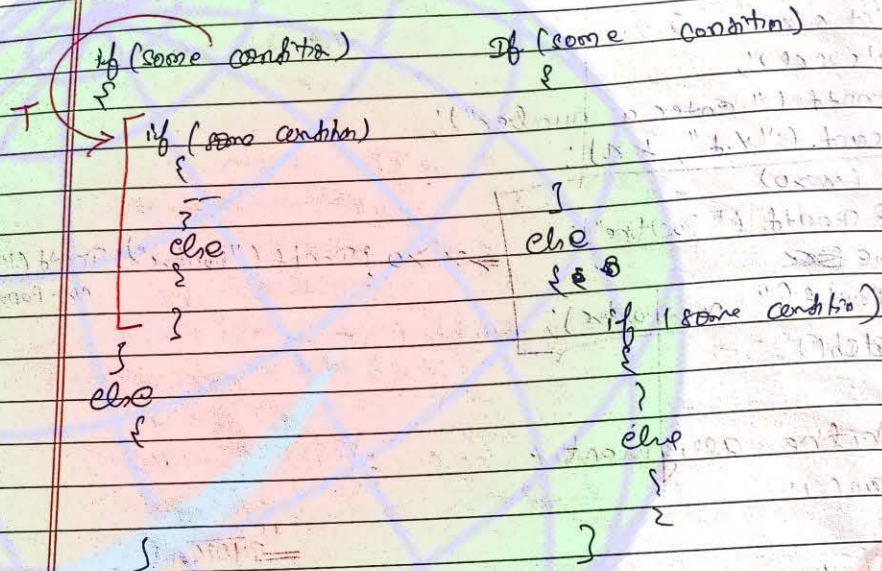 if (some condition)
{
T
if (some condition)
{
}
else
{
}
}
else
{
}
If (some condition)
{
}
else
{
if (some condition)
{
}
else
{
{
}